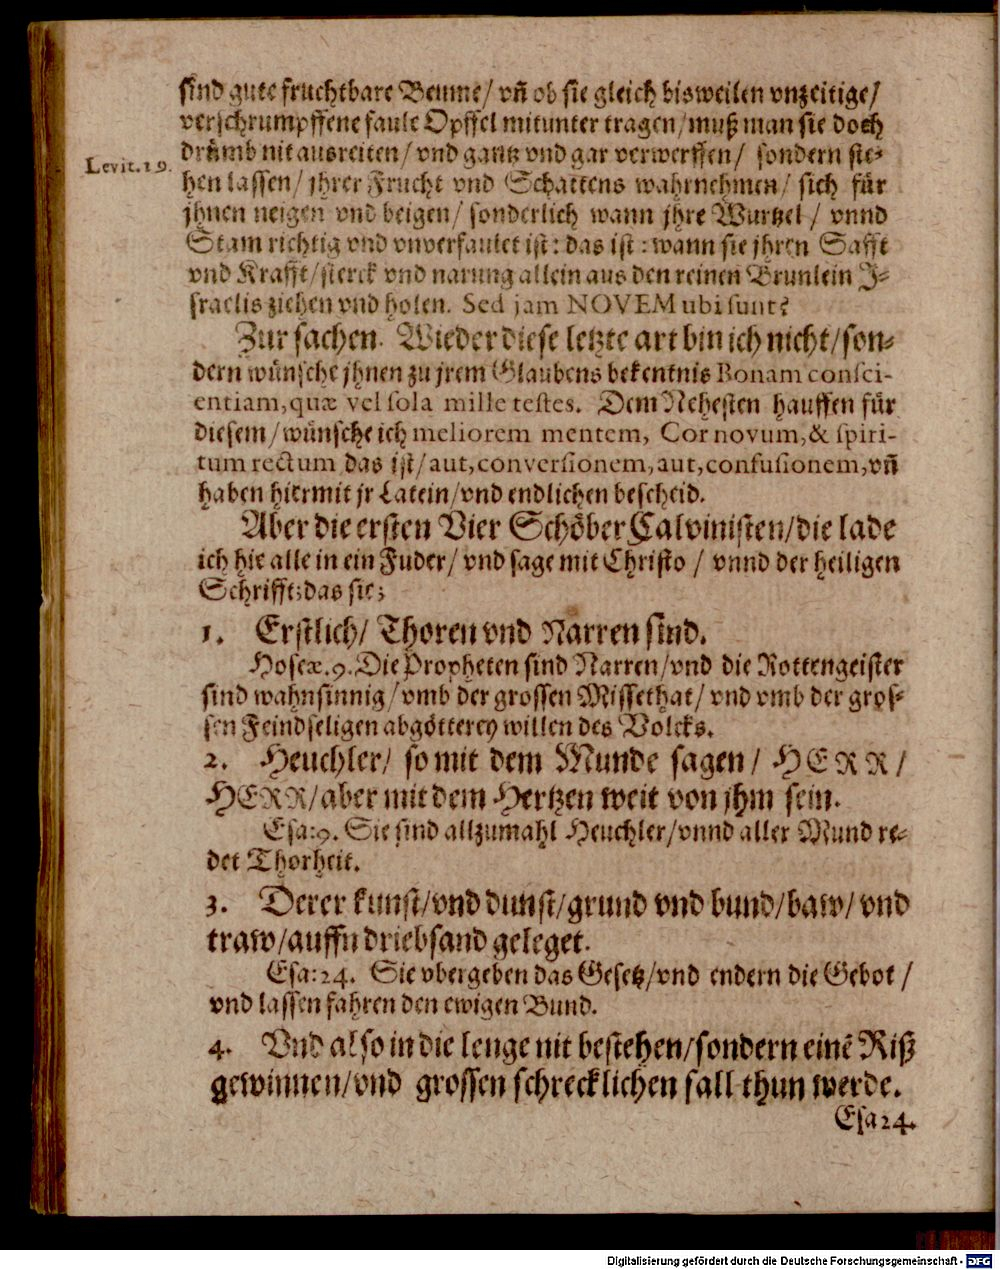 sind gute fruchtbare Beume/ vñ ob sie gleich bisweilen vnzeitige/
verschrumpffene faule Öpffel mitunter tragen/ muß man sie doch
Levit. 19.
drümb nit ausreiten/ vnd gantz vnd gar verwerffen/ sondern ste-
hen lassen/ jhrer Frucht vnd Schattens wahrnehmen/ sich für
jhnen neigen vnd beigen/ sonderlich wann jhre Wurtzel/ vnnd
Stam richtig vnd vnverfaulet ist: das ist: wann sie jhren Safft
vnd Krafft/ sterck vnd narung allein aus den reinen Brunlein I-
sraelis ziehen vnd holen. Sed jam NOVEM ubi sunt?
Zur sachen. Wieder diese letzte art bin ich nicht/ son-
dern wünsche jhnen zu jrem Glaubens bekentnis Bonam consci-
entiam, quæ vel sola mille testes. Dem Nehesten hauffen für
diesem/ wünsche ich meliorem mentem, Cor novum, & spiri-
tum rectum das ist/ aut, conversionem, aut, confusionem, vñ
haben hiermit jr Latein/ vnd endlichen bescheid.
Aber die ersten Vier Schöber Calvinisten/ die lade
ich hie alle in ein Fuder/ vnd sage mit Christo/ vnnd der heiligen
Schrifft; das sie;
1. Erstlich/ Thoren vnd Narren sind.
Hoseæ. 9. Die Propheten sind Narren/ vnd die Rottengeister
sind wahnsinnig/ vmb der grossen Missethat/ vnd vmb der gros-
sen Feindseligen abgötterey willen des Volcks.
2. Heuchler/ so mit dem Munde sagen/ HERR/
HERR/ aber mit dem Hertzen weit von jhm sein.
Esa: 9. Sie sind allzumahl Heuchler/ vnnd aller Mund re-
det Thorheit.
3. Derer kunst/ vnd dunst/ grund vnd bund/ baw/ vnd
traw/ auffn driebsand geleget.
Esa: 24. Sie vbergeben das Gesetz/ vnd endern die Gebot/
vnd lassen fahren den ewigen Bund.
4. Vnd also in die lenge nit bestehen/ sondern einẽ Riß
gewinnen/ vnd grossen schrecklichen fall thun werde.
Esa 24.
Digitalisierung gefördert durch die Deutsche Forschungsgemeinschaft - DFG